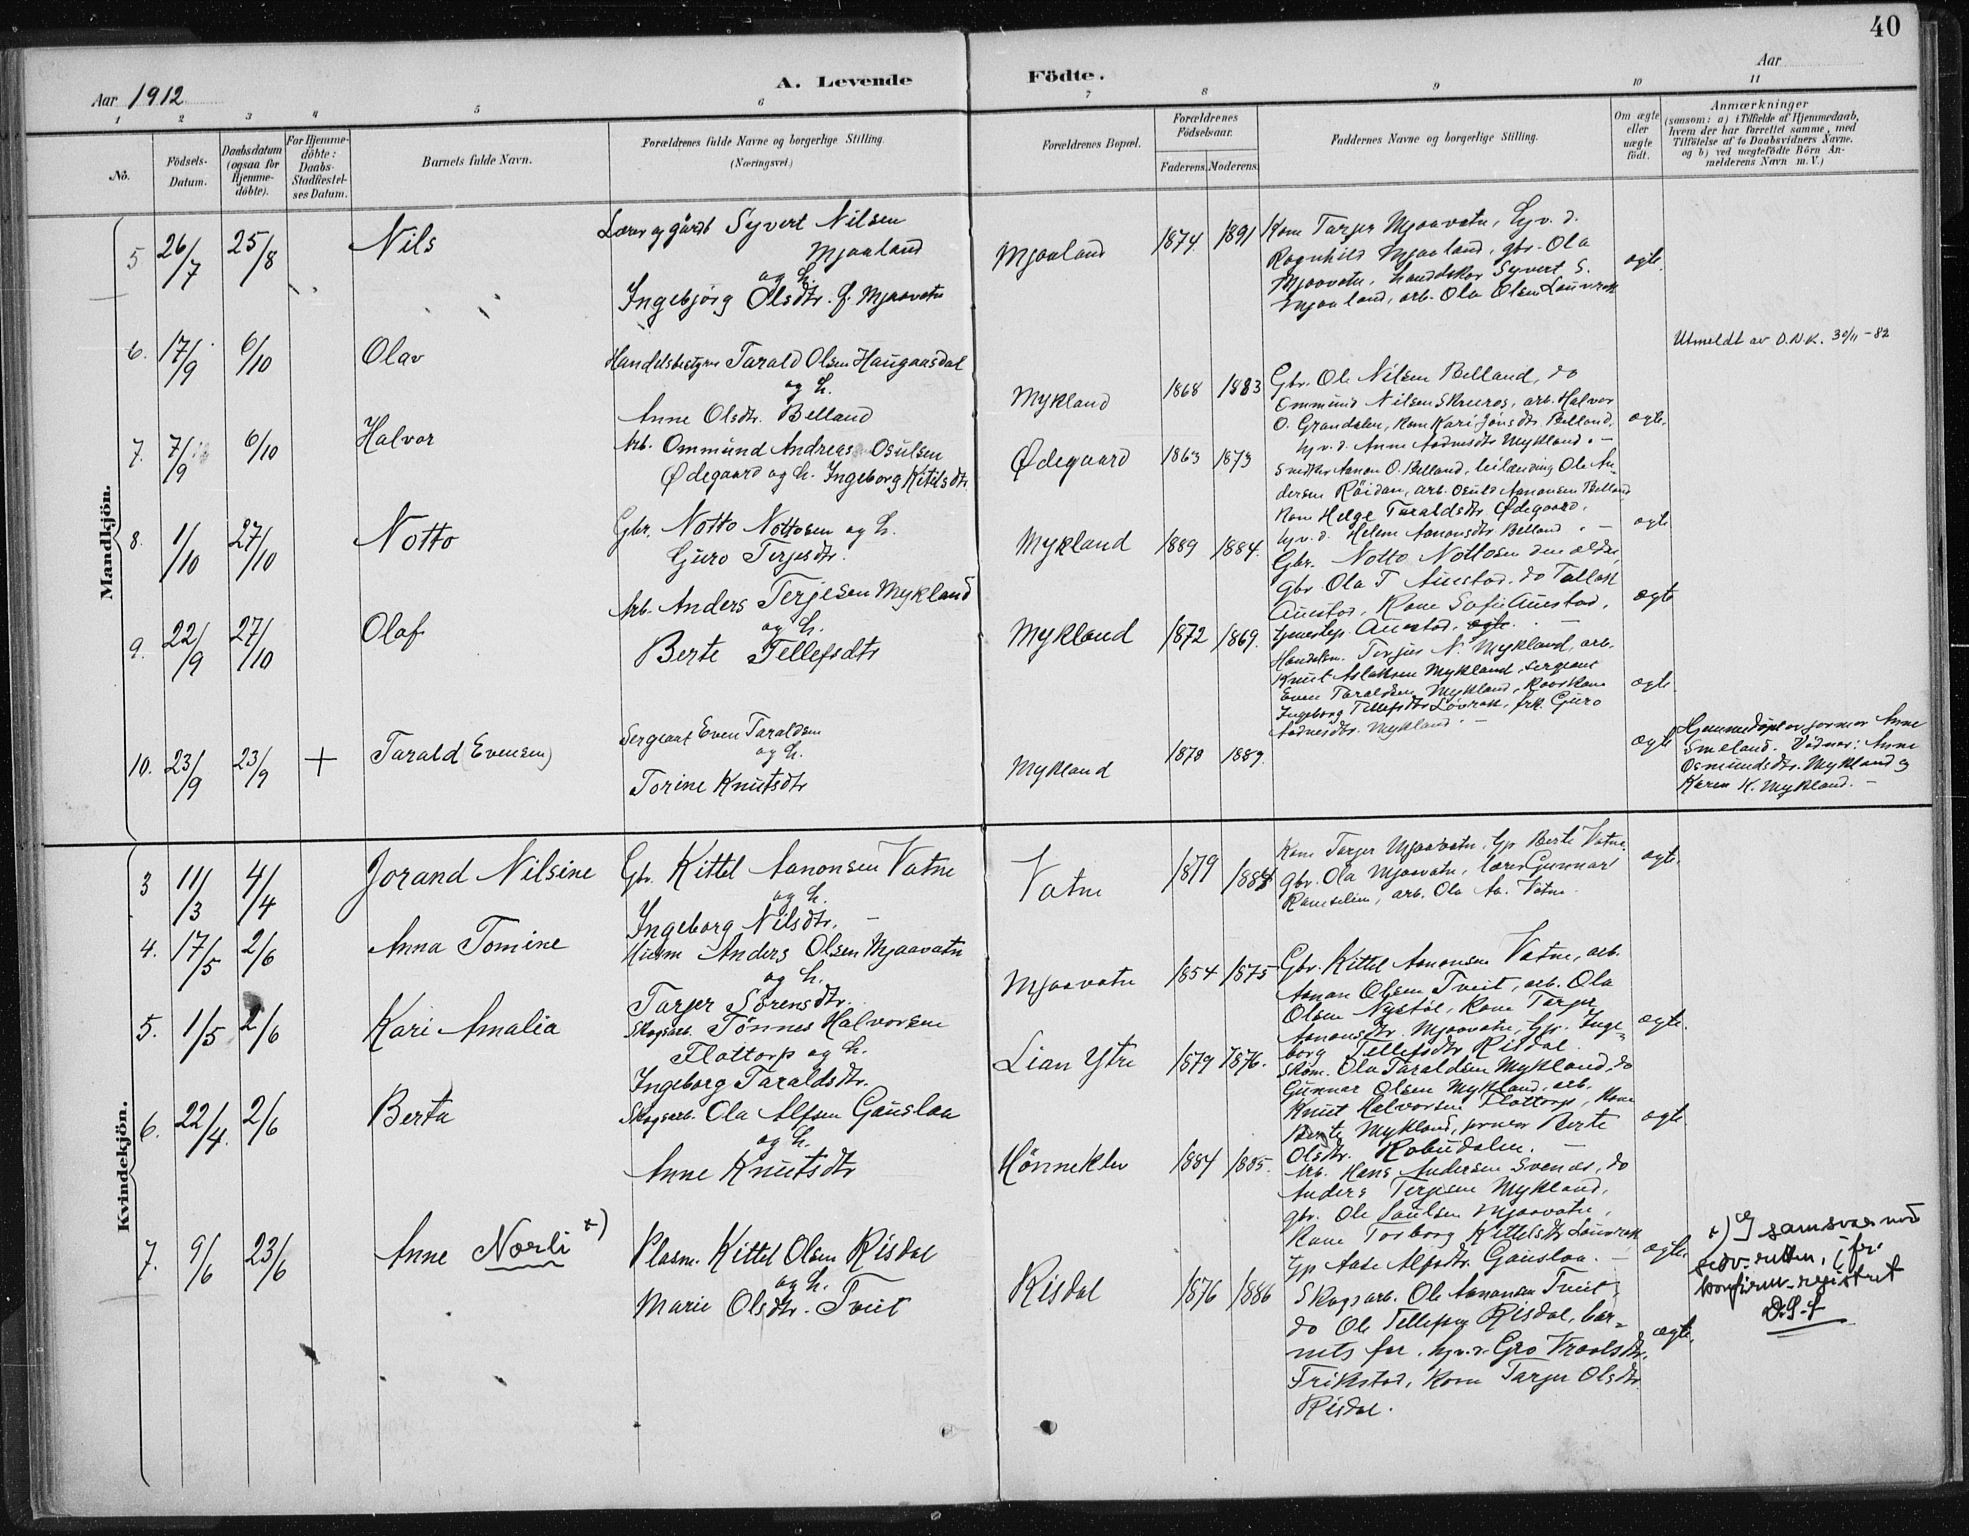 40
Aar 1912
A. Levende Födte.
Aar
1 2 3 4 5 6 7 8 9 10 11
No.
Födsels-Datum.
Daabsdatum (ogsaa for Hjemme-döbte).
For Hjemme-döbte: Daabs-Stadfæstel-ses Datum.
Barnets fulde Navn.
Forældrenes fulde Navne og borgerlige Stilling. (Næringsvei.)
Forældrenes Bopæl.
Forældrenes Födselsaar.
Faderens. Moderens.
Faddernes Navne og borgerlige Stilling.
Om ægte eller uægte födt.
Anmærkninger
(saasom: a) i Tilfælde af Hjemmedaab,
hvem der har forrettet samme, med
Tilföielse af to Daabsvidners Navne.
og b) ved uægtefödte Börn An-
melderens Navn m. V.)
Mandkjön.
5 26/7 25/8 Nils
Lærer og gårdb Syvert Nilsen
Mjaaland
og h.
Ingebjörg Olsdtr. f. Mjaavatn
Mjaaland 1874 1891
Kone Tarjer Mjaavatn, Gjv. d.
Ragnhild Mjaaland, gbr. Ola
Mjaavatn, handelskar Syvert S.
Mjaaland, arb. Ola Olsen Lauvrak
ægte.
6. 17/9 6/10 Olav
Handelsbestyrer Tarald Olsen Haugaasdal
og h.
Anne Olsdtr. Belland
Mykland 1868 1883
Gbr. Ole Nilsen Belland, do
Ommund Nilsen Skreros, arb. Halvor
O. Grandalen, Kone Kari Jonsdtr. Belland,
hjv. d. Anne Aadnesdtr Mykland. –
ægte.
Utmeldt av D.N.K. 30/11 - 82
7. 7/9 6/10 Halvor
Arb. Ommund Andreas Osulsen
Ødegaard og h. Ingeborg Kitilsdtr
Ødegaard 1863 1873
Snedker Aanon O. Belland, leilænding Ole An-
dersen Röidan, arb. Osuld Aanonsen Belland
Kone Helge Taraldsdtr Ødegaard,
hjv. d. Helene Aanonsdtr Belland. –
ægte
8. 1/10 27/10 Notto
Gbr. Notto Nottosen og h.
Guro Terjesdtr.
Mykland 1889 1884.
Gbr. Notto Nottosen den ældre,
gbr Ola T Austad, do Tallak
Austad, Kone Sofie Austad,
Austad, ægte. –
ægte
9. 22/9 27/10 Olaf
Arb. Anders Terjesen Mykland
og h.
Berte Tellefsdtr
Mykland 1872 1869.
Handelsm. Terjus N. Mykland, arb.
Knut Aslaksen Mykland, Sergeant
Even Taraldsen Mykland, Kone
Ingeborg Tellefsdtr Lövrak, frk. Guro
Aadnesdtr. Mykland. –
ægte
10. 23/9 23/9 + Tarald (Evensen)
Sergeant Even Taraldsen
og h.
Torine Knutsdtr
Mykland 1878 1889.
ægte
Hjemmedöpt av jormor Anne
Smeland. Vidner: Anne
Osmundsdtr. Mykland og
Karen K. Mykland. –
Kvindekjön.
3 11/3 4/4 Jorand Nilsine
Gbr. Kittel Aanonsen Vatne
og h.
Ingeborg Nilsdtr. –
Vatne 1879 1884
Kone Tarjer Mjaavatn, Gjp Berte Vatne
gbr. Ola Mjaavatn, lærer Gunnar
Ramselien, arb. Ola Aa. Vatne.
ægte.
4. 17/5 2/6 Anna Tomine
Husm Anders Olsen Mjaavatn
og h.
Tarjer Sörensdtr.
Mjaavatn 1854 1875
Gbr. Kittel Aanonsen Vatne, arb.
Aanon Olsen Tveit, arb. Ola
Olsen Nystöl, Kone Tarjer
Aanonsdtr. Mjaavatn, Gjp. Inge-
borg Tellefsdtr Risdal.
ægte.
5. 1/5 2/6 Kari Amalia
Skogsarb. Tönnes Halvorsen
Flottorp og h.
Ingeborg Taraldsdtr.
Lian Ytre 1879 1876.
Skom. Ola Taraldsen Mykland, do
Gunnar Olsen Mykland, arb.
Knut Halvorsen Flottorp, Kone
Berte Mykland, jomfr Berte
Olsdtr. Robudalen. –
ægte
6. 22/4. 2/6 Berta
Skogsarb. Ola Alfsen Gauslaa
og h.
Anne Knutsdtr
Hönneklev 1884 1885.
Arb. Hans Andersen Svenas, do
Anders Terjesen Mykland,
gbr. Ole Paulsen Mjaavatn,
Kone Torborg Kittelsdtr Lauvrak
Gjp Aase Alfsdtr. Gauslaa. –
ægte
7. 9/6 23/6 Anne Nærli +)
Plasm. Kittel Olsen Risdal
og h.
Marie Olsdtr. Tveit
Risdal 1876 1886
Skogsarb. Ole Aanonsen Tveit,
do Ole Tellefsen Risdal, bar-
nets far, hjv. d. Gro Vraalsdtr.
Frikstad, Kone Tarjer Olsdtr
Risdal.
ægte.
+) I samsvar med
sedv.retten, jfr.
konfirm.registret